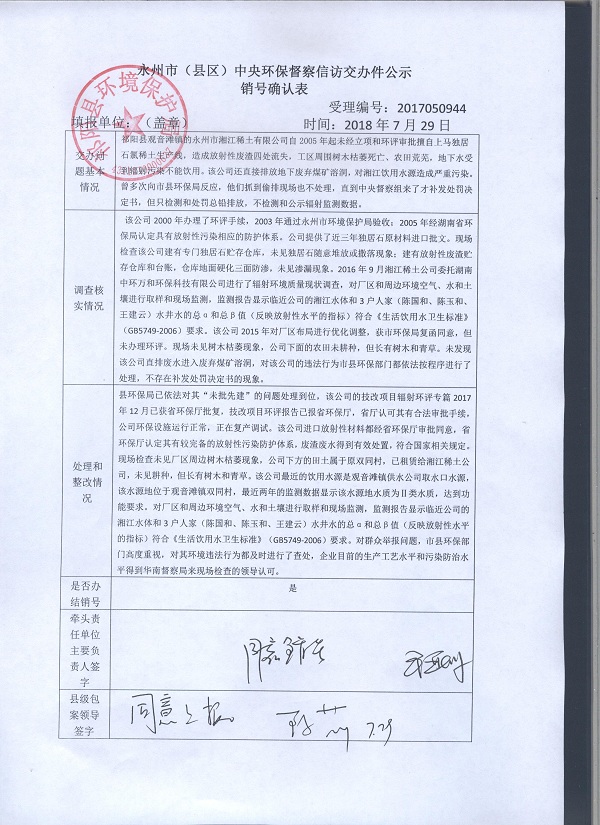 永州市（县区）中央环保督察信访交办件公示
销号确认表
受理编号：2017050944
填报单位：（盖章）
时间：2018 年 7 月 29 日
祁阳县环境保护局
交办问
题基本
情况
祁阳县观音滩镇的永州市湘江稀土有限公司自 2005 年起未经立项和环评审批擅自上马独居
石氯稀土生产线，造成放射性废渣四处流失，工区周围树木枯萎死亡、农田荒芜，地下水受
到辐射污染不能饮用。该公司还直接排放地下废弃煤矿溶洞，对湘江饮用水源造成严重污染。
曾多次向市县环保局反应，他们抓到偷排现场也不处理，直到中央督察组来了才补发处罚决
定书，但只检测和处罚总铅排放，不检测和公示辐射监测数据。
调查核
实情况
该公司 2000 年办理了环评手续，2003 年通过永州市环境保护局验收；2005 年经湖南省环
保局认定具有放射性污染相应的防护体系。公司提供了近三年独居石原材料进口批文。现场
检查该公司建有专门独居石贮存仓库，未见独居石随意堆放或撒落现象；建有放射性废渣贮
存仓库和台账，仓库地面硬化三面防渗，未见渗漏现象。2016 年 9 月湘江稀土公司委托湖南
中环万和环保科技有限公司进行了辐射环境质量现状调查，对厂区和周边环境空气、水和土
壤进行取样和现场监测，监测报告显示临近公司的湘江水体和 3 户人家（陈国和、陈玉和、
王建云）水井水的总α和总β值（反映放射性水平的指标）符合《生活饮用水卫生标准》
（GB5749-2006）要求。该公司 2015 年对厂区布局进行优化调整，获市环保局复函同意，但
未办理环评。现场未见树木枯萎现象，公司下面的农田未耕种，但长有树木和青草。未发现
该公司直排废水进入废弃煤矿溶洞，对该公司的违法行为市县环保部门都依法按程序进行了
处理，不存在补发处罚决定书的现象。
处理和
整改情
况
县环保局已依法对其“未批先建”的问题处理到位，该公司的技改项目辐射环评专篇 2017
年 12 月已获省环保厅批复，技改项目环评报告已报省环保厅，省厅认可其有合法审批手续，
公司环保设施运行正常，正在复产调试。该公司进口放射性材料都经省环保厅审批同意，省
环保厅认定其有较完备的放射性污染防护体系，废渣废水得到有效处置，符合国家相关规定。
现场检查未见厂区周边树木枯萎现象，公司下方的田土属于原双同村，已租赁给湘江稀土公
司，未见耕种，但长有树木和青草。该公司最近的饮用水源是观音滩镇供水公司取水口水源，
该水源地位于观音滩镇双同村，最近两年的监测数据显示该水源地水质为Ⅱ类水质，达到功
能要求。对厂区和周边环境空气、水和土壤进行取样和现场监测，监测报告显示临近公司的
湘江水体和 3 户人家（陈国和、陈玉和、王建云）水井水的总α和总β值（反映放射性水平
的指标）符合《生活饮用水卫生标准》（GB5749-2006）要求。对群众举报问题，市县环保部
门高度重视，对其环境违法行为都及时进行了查处，企业目前的生产工艺水平和污染防治水
平得到华南督察局来现场检查的领导认可。
是否办
结销号
是
牵头责
任单位
主要负
责人签
字
县级包
案领导
签字
同意上报
7.29